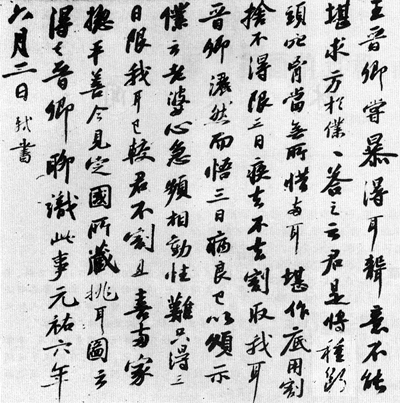 王晉卿嘗暴得耳聾意不能
堪求方於僕〻答之云君是將種斷
頭穴胸當無所惜兩耳堪作底用割
捨不得限三日疾去不去割取我耳
晉卿灑然而悟三日病良已以頌示
僕云老婆心急頻相勸性難只得三
日限我耳已較君不割且喜兩家
揔平善今見定國所藏挑耳圖云
得之晉卿聊識此事元祐六年
八月二日軾書